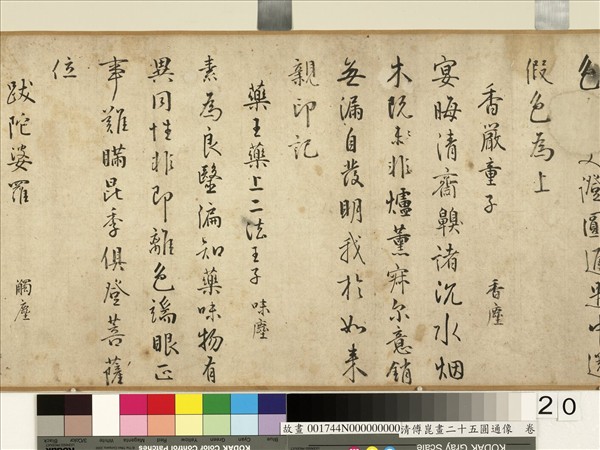 色 證圓通是中選
假色為上
香嚴童子 香塵
宴晦清齋齅諸沉水烟
木既非爐薰寂尔意銷
無漏自發明我於如来
親印記
藥王藥上二法王子 味塵
素為良醫徧知藥味物有
異同性非即離色端眼正
事難瞞昆季俱登菩薩
位
跋陀婆羅 觸塵
20
故畫 001744N000000000 清傅崑畫二十五圓通像 卷
KODAK Color Control Patches
KODAK Gray Scale